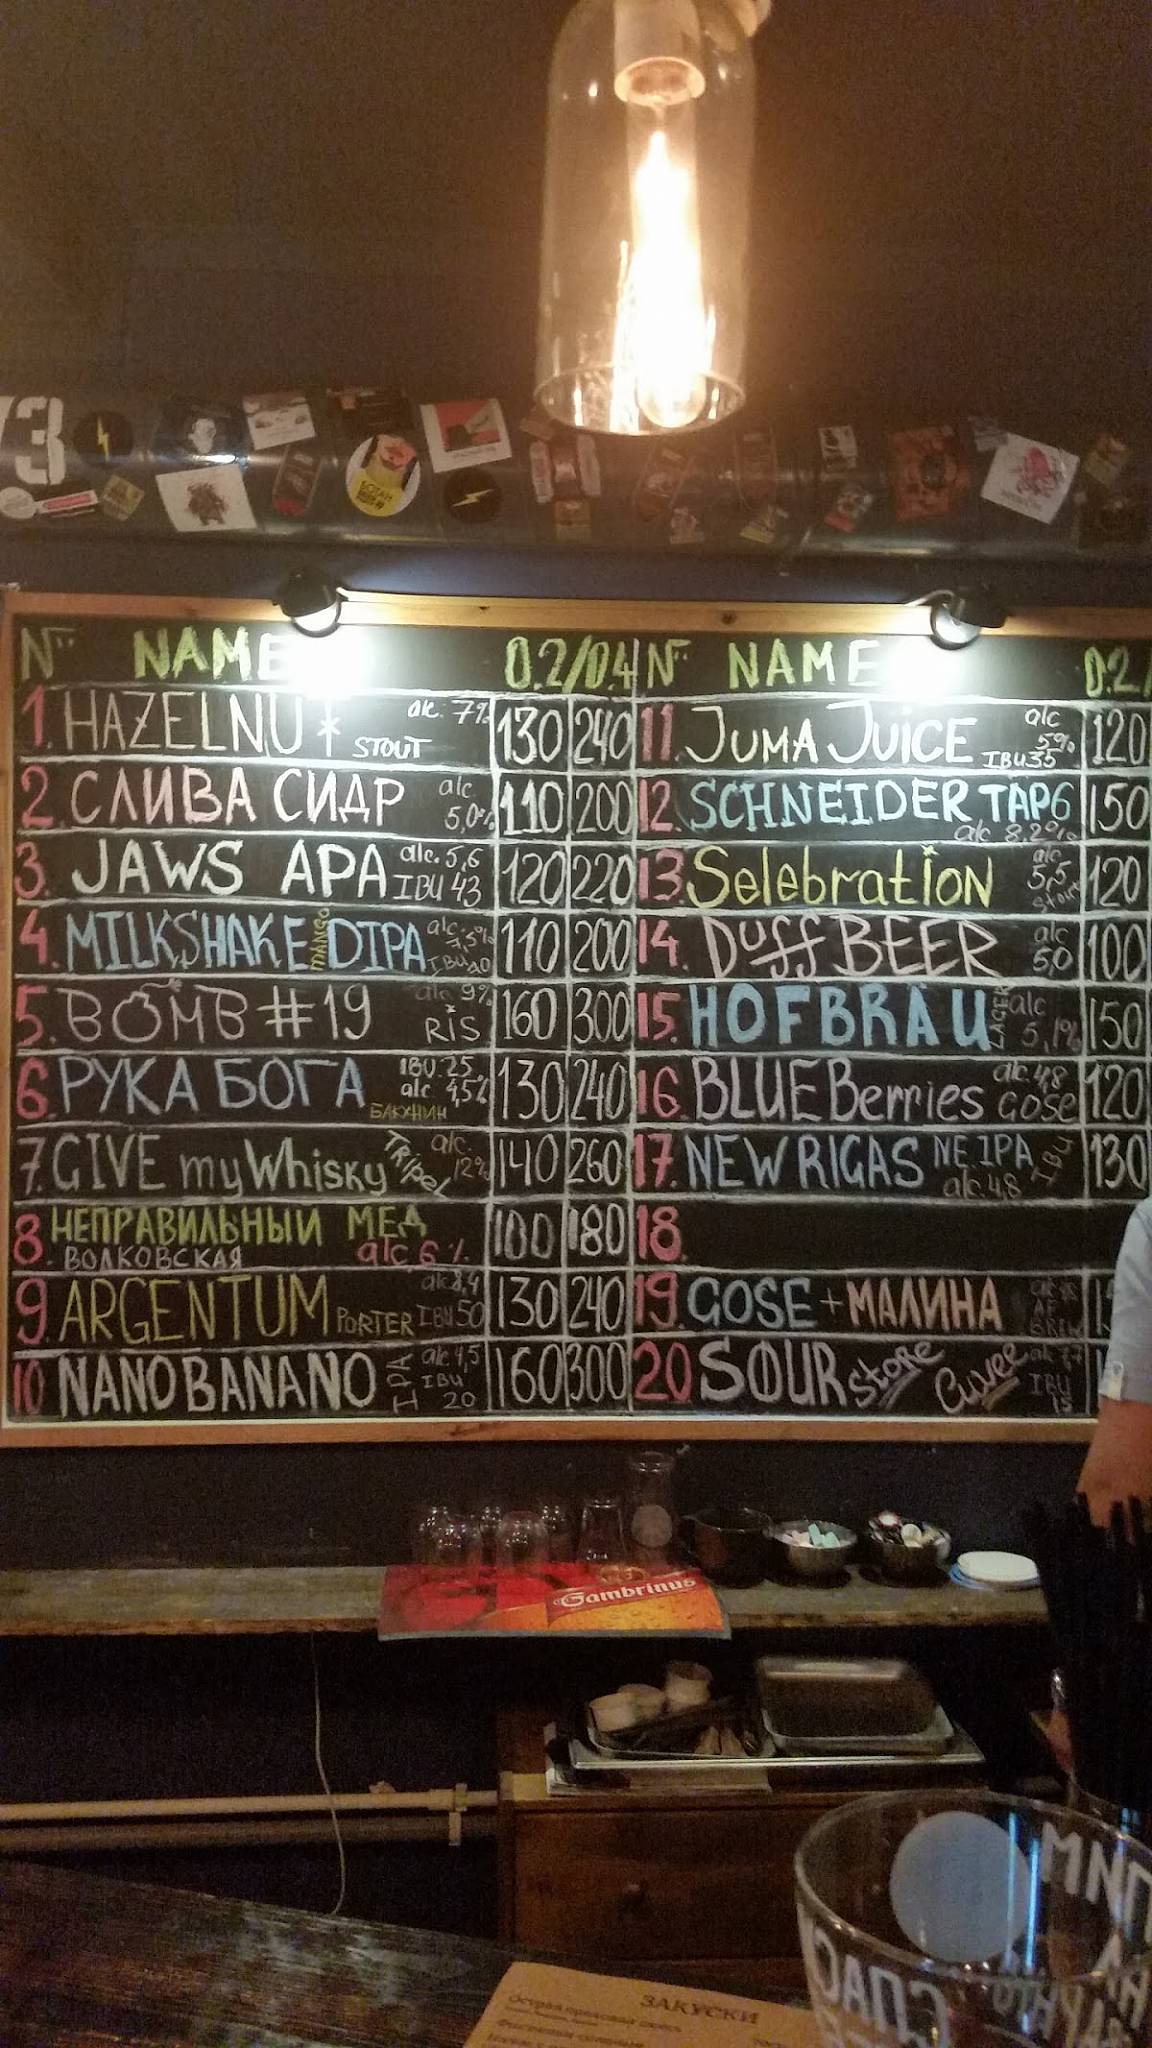 N° NAME 0.2/0.4
1. HAZELNUT STOUT alc. 7% 130 240
2. СЛИВА СИДР alc. 5,0% 110 200
3. JAWS APA alc. 5,6 IBU 43 120 220
4. MILKSHAKE MANGO DIPA alc. 7,5% IBU 40 110 200
5. BOMB #19 alc 9% RIS 160 300
6. РУКА БОГА IBU 25 alc 4,5% БАКУНИН 130 240
7. GIVE my Whisky Tripel alc. 12% 140 260
8. НЕПРАВИЛЬНЫЙ МЕД ВОЛКОВСКАЯ alc 6% 100 180
9. ARGENTUM PORTER alc 8,4 IBU 50 130 240
10 NANOBANANO IPA alc 4,5 IBU 20 160 300
N° NAME 0.2/
11. JUMA JUICE alc 5% IBU 35 120
12. SCHNEIDER TAP6 alc 8.2% 150
13. Selebration alc 5,5 Stout 120
14. Duff BEER alc 5,0 100
15. HOFBRÄU LAGER alc 5,1% 150
16. BLUEBerries alc 4,8 GOSE 120
17. NEW RIGAS NE IPA alc. 4,8 IBU 130
18.
19. GOSE + МАЛИНА AF BREW
20. SOUR Store Cuvee alc 7,7 IBU 15
Gambrinus
ЗАКУСКИ